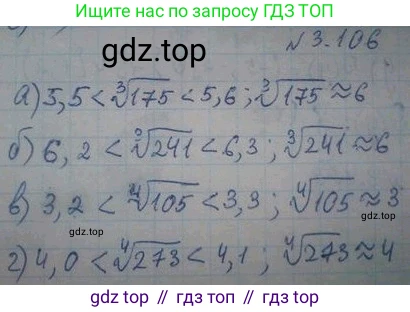 Ищите нас в гугл по запросу ГДЗ ТОП
gdz.top
№ 3.106
а) 5,5 < ∛175 < 5,6 ; ∛175 ≈ 6
б) 6,2 < ∛241 < 6,3 ; ∛241 ≈ 6
в) 3,2 < ∜105 < 3,3 ; ∜105 ≈ 3
gdz.top
gdz.top
г) 4,0 < ∜273 < 4,1 ; ∜273 ≈ 4
gdz top // гдз топ // гдз.топ